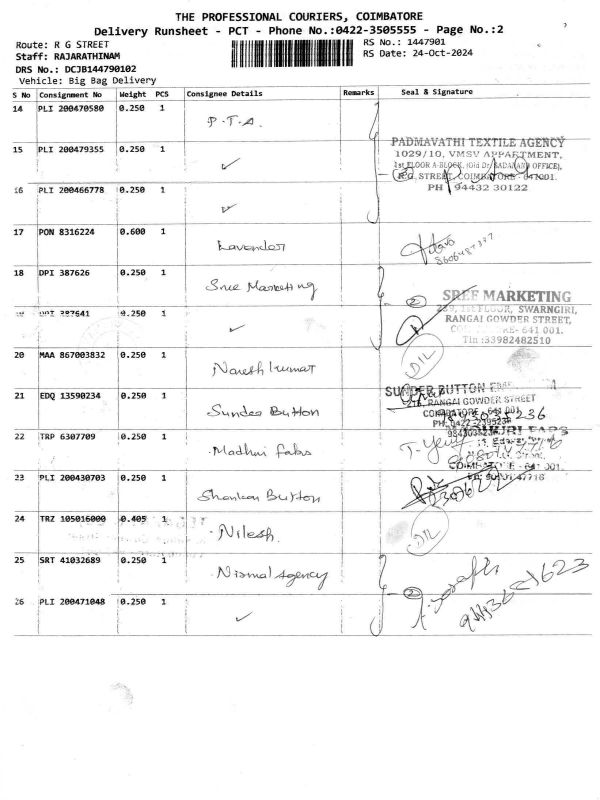 THE PROFESSIONAL COURIERS, COIMBATORE
Delivery Runsheet - PCT - Phone No.:0422-3505555 - Page No.:2
Route: R G STREET
RS No.: 1447901
Staff: RAJARATHINAM
RS Date: 24-Oct-2024
DRS No.: DCJB144790102
Vehicle: Big Bag Delivery
S No Consignment No Weight PCS Consignee Details Remarks Seal & Signature
14 PLI 200470580 0.250 1 P.T.A.
15 PLI 200479355 0.250 1 ✓
PADMAVATHI TEXTILE AGENCY
1029/10, VMSV APPARTMENT,
1st FLOOR A-BLOCK, (Old Dr. OFFICE),
R.G. STREET, COIMBATORE - 641001.
PH 94432 30122
16 PLI 200466778 0.250 1 ✓
17 PON 8316224 0.600 1 Lavender
18 DPI 387626 0.250 1 Sree Marketing
2
SREE MARKETING
239, 1st FLOOR, SWARNGIRI,
RANGAI GOWDER STREET,
COIMBATORE- 641 001.
Tin :33982482510
19 DPI 387641 0.250 1 ✓
20 MAA 867003832 0.250 1 Naresh kumar DIL
21 EDQ 13590234 0.250 1 Sunder Button
SUNDER BUTTON
RANGAI GOWDER STREET
COIMBATORE - 641 001
22 TRP 6307709 0.250 1 Madhuri fabs
COIMBATORE - 641 001.
23 PLI 200430703 0.250 1 Shankar Button
24 TRZ 105016000 0.405 1 Nilesh DIL
25 SRT 41032689 0.250 1 Nirmal Agency
2
26 PLI 200471048 0.250 1 ✓